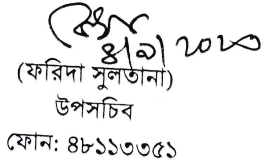 ৪/৯/২০২৩
(ফরিদা সুলতানা)
উপসচিব
ফোন: ৪৮১১৩৩৫১